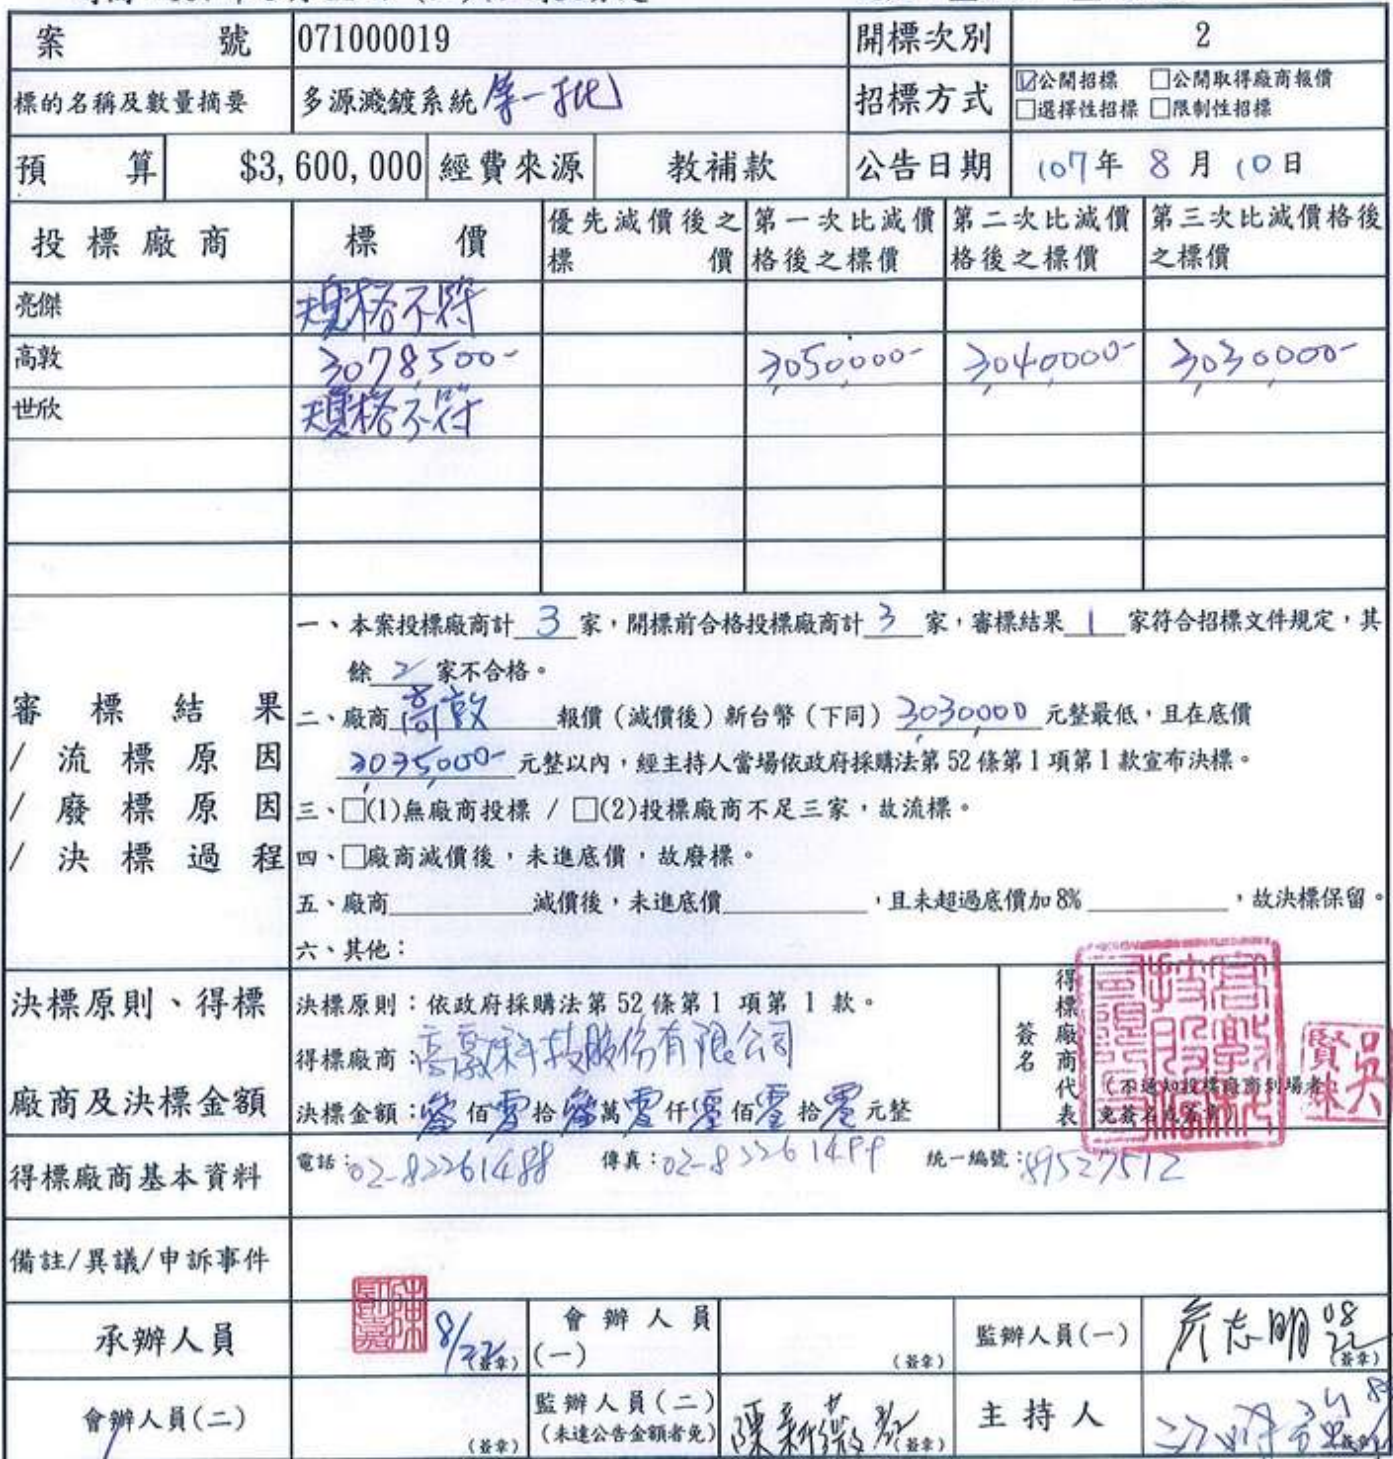 案 號 071000019 開標次別 2
標的名稱及數量摘要 多源濺鍍系統 第一批 招標方式 ☑公開招標 □公開取得廠商報價
□選擇性招標 □限制性招標
預 算 $3,600,000 經費來源 教補款 公告日期 107年 8月 10日
投標廠商 標 價 優先減價後之標 價 第一次比減價格後之標價 第二次比減價格後之標價 第三次比減價格後之標價
亮傑 規格不符
高敦 3,078,500- 3,050,000- 3,040,000- 3,030,000-
世欣 規格不符
審標結果
/流標原因
/廢標原因
/決標過程
一、本案投標廠商計 3 家,開標前合格投標廠商計 3 家,審標結果 1 家符合招標文件規定,其
餘 2 家不合格。
二、廠商 高敦 報價(減價後)新台幣(下同) 3,030,000 元整最低,且在底價
3,035,000- 元整以內,經主持人當場依政府採購法第52條第1項第1款宣布決標。
三、□(1)無廠商投標 / □(2)投標廠商不足三家,故流標。
四、□廠商減價後,未進底價,故廢標。
五、廠商 減價後,未進底價 ,且未超過底價加8% ,故決標保留。
六、其他:
決標原則、得標
廠商及決標金額
決標原則:依政府採購法第52條第1 項第 1 款。
得標廠商:高敦科技股份有限公司
決標金額:參佰零拾參萬零仟零佰零拾零元整
得標廠商代表
簽名
(不通知投標廠商到場者,
免簽名或蓋章)
吳賢
得標廠商基本資料 電話:02-82261488 傳真:02-82261499 統一編號:89527512
備註/異議/申訴事件
承辦人員 8/22 (簽章) 會辦人員(一) (簽章) 監辦人員(一) 志明 08/22 (簽章)
會辦人員(二) (簽章) 監辦人員(二)
(未達公告金額者免) 陳 (簽章) 主持人